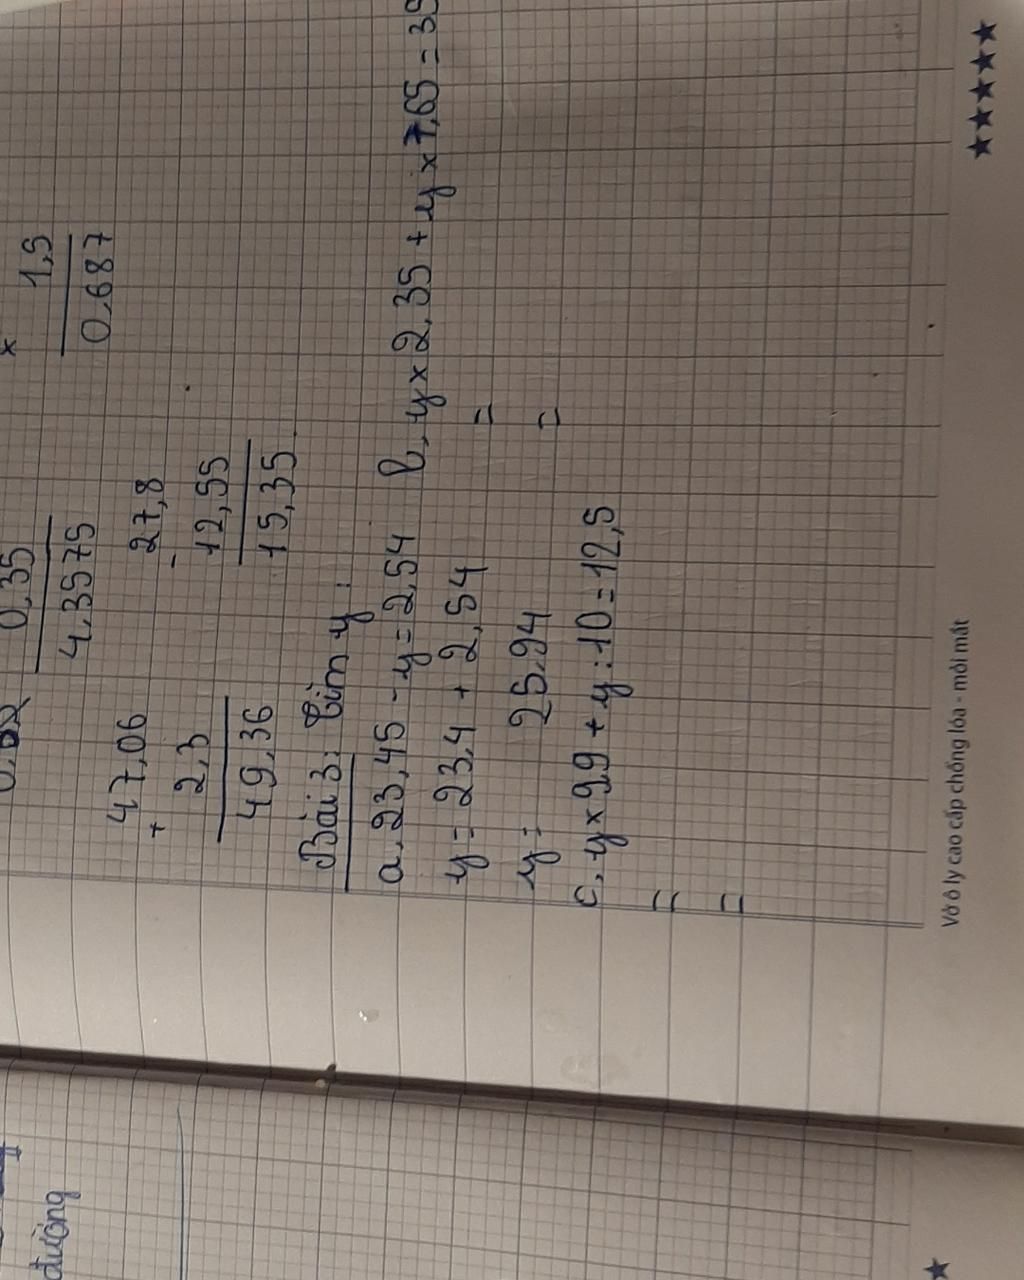 0,35
x
1,5
4,3575
0.687
47,06
+
2,3
49,36
27,8
-
12,55
15,35
Bài 3: Tìm y:
a, 23,45 - y = 2,54
b, y x 2,35 + y x 7,65 = 35
y = 23,4 + 2,54
=
y = 25.94
=
c, y x 99 + y : 10 = 12,5
=
=
Vở ô ly cao cấp chống lóa - mỏi mắt
đường